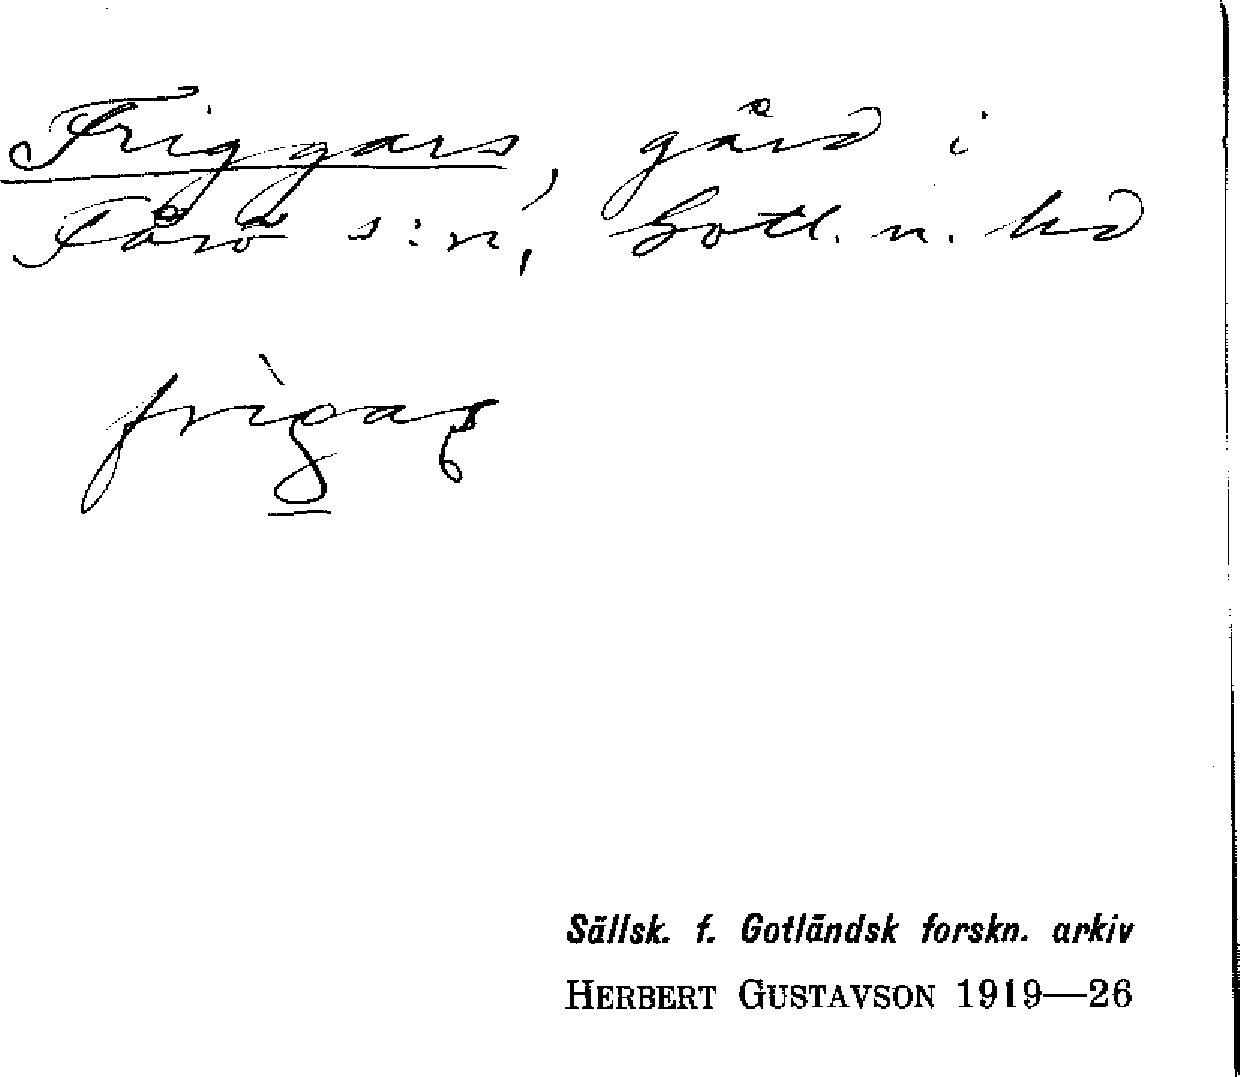 Friggars, gård i
Fårö s:n, Gotl. n. hd
frìgaʂ
Sällsk. f. Gotländsk forskn. arkiv
HERBERT GUSTAVSON 1919—26